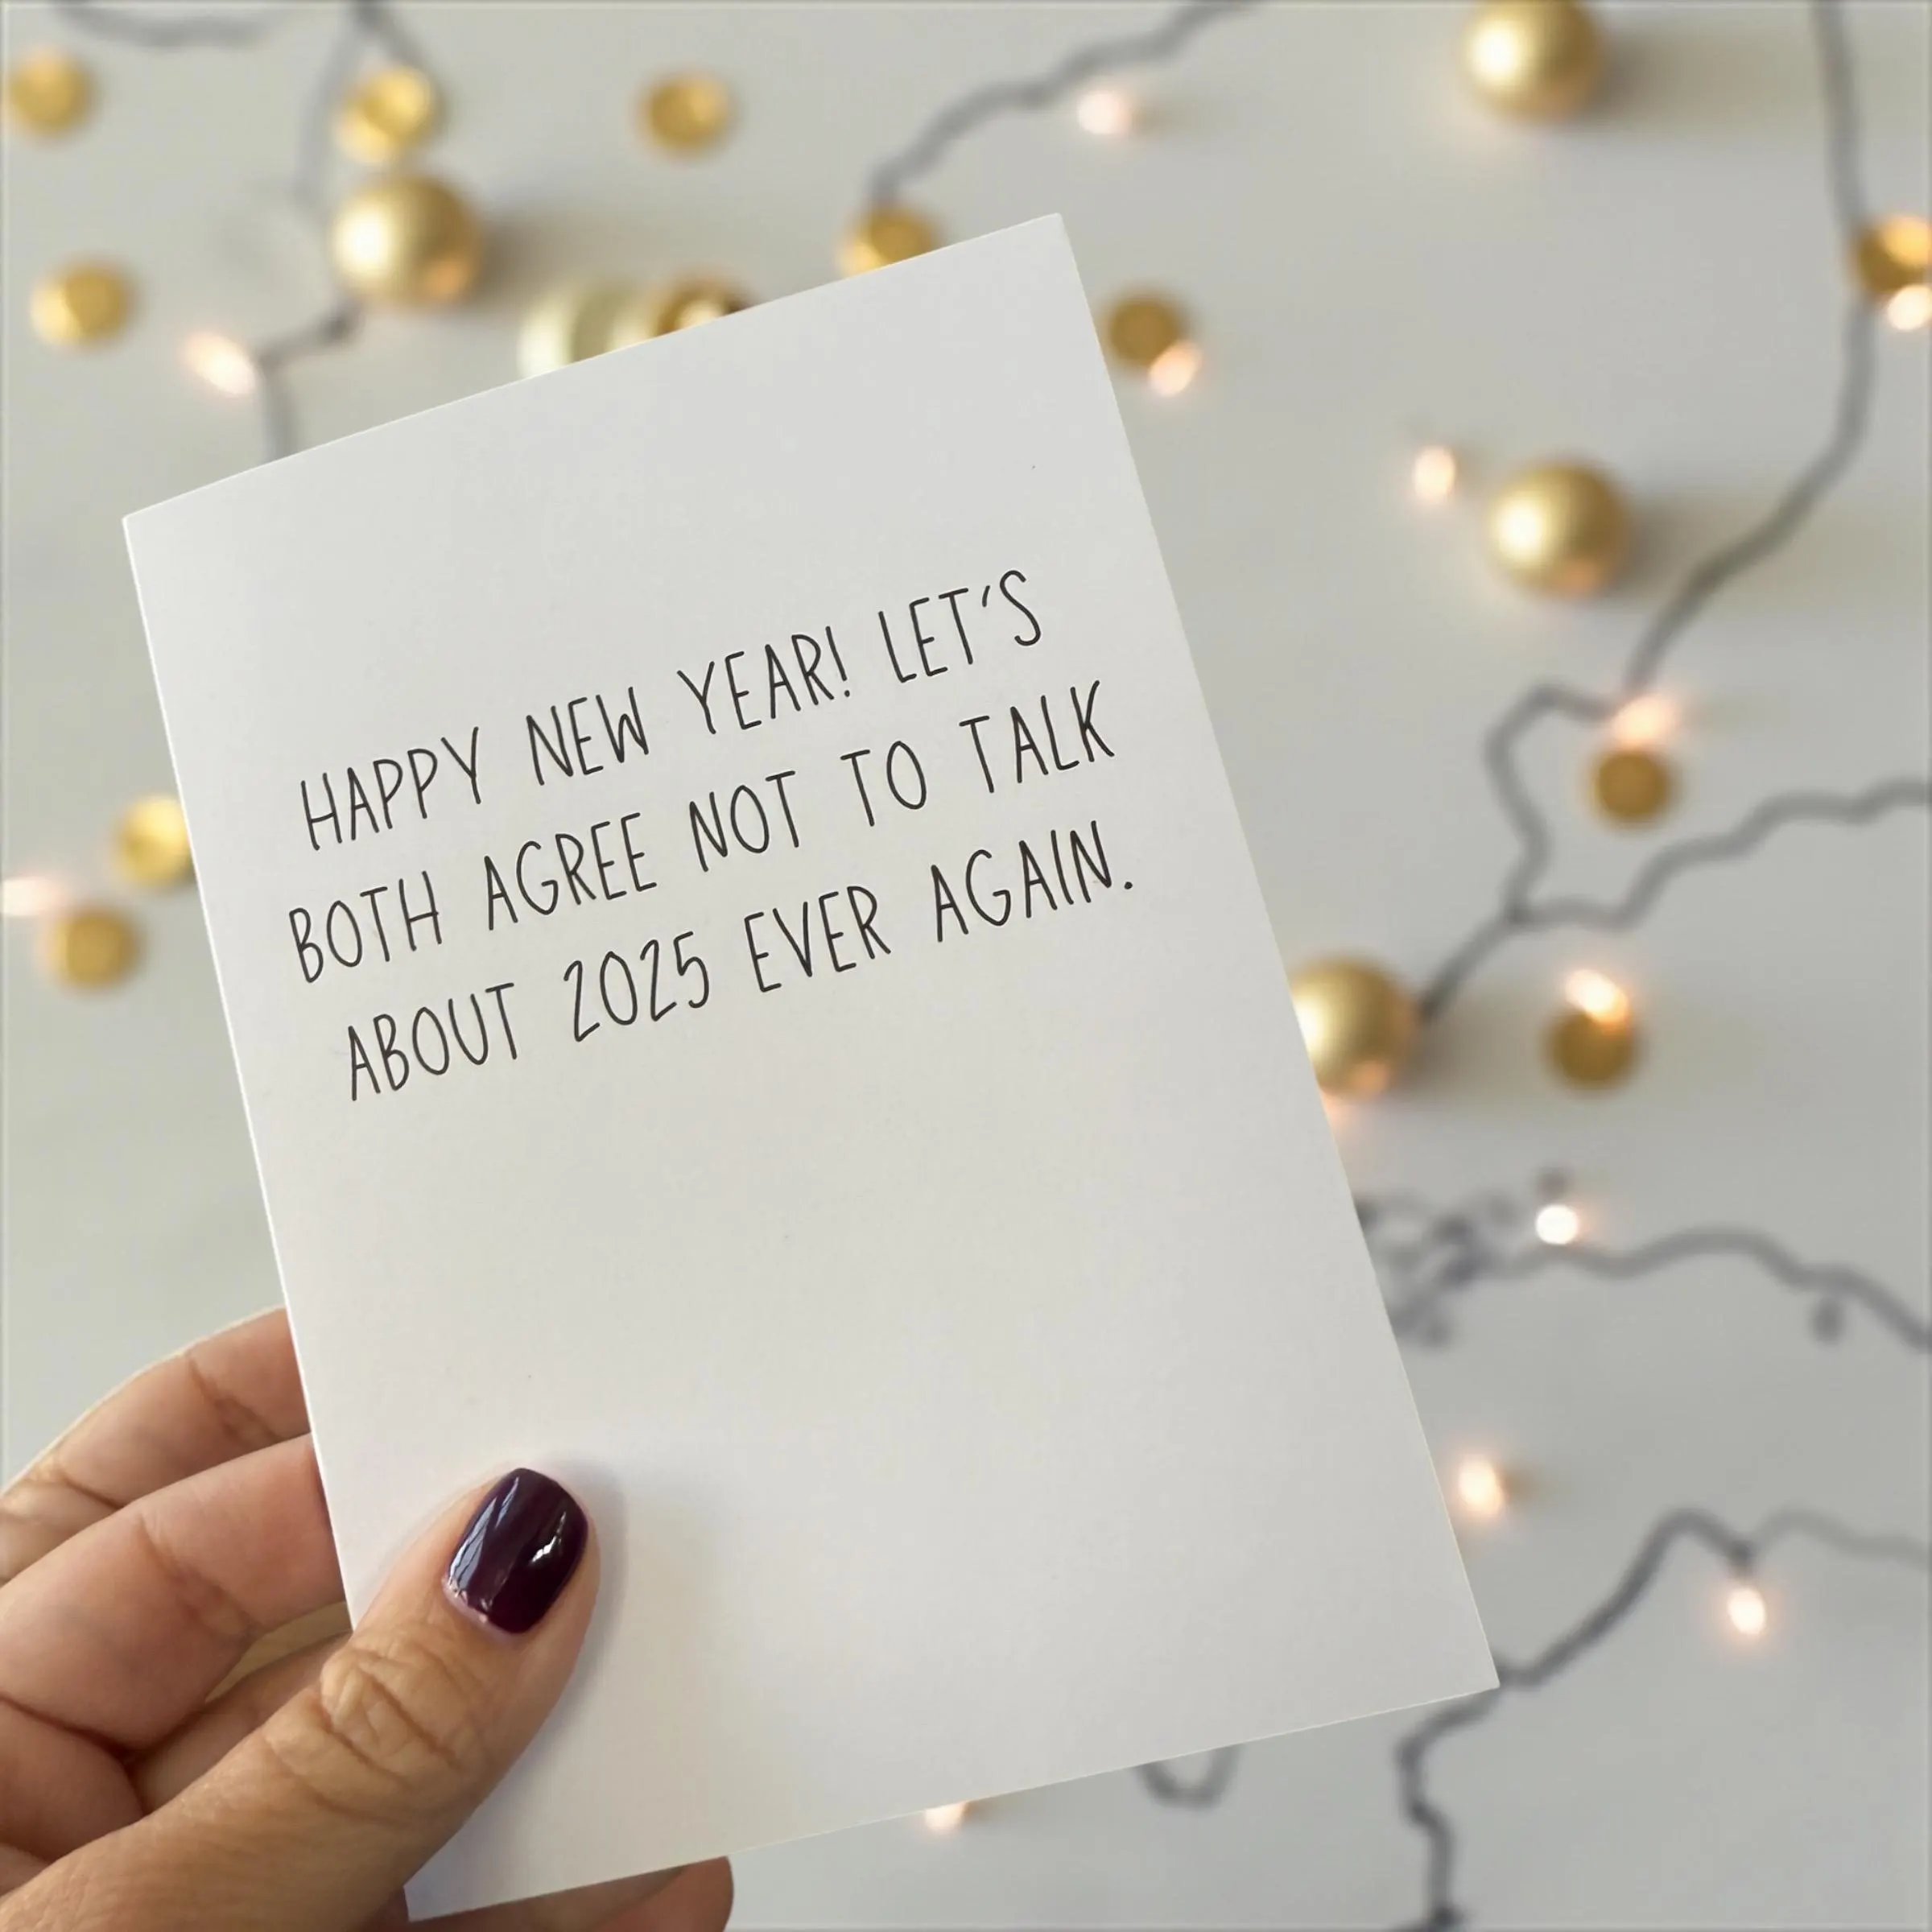 HAPPY NEW YEAR! LET'S
BOTH AGREE NOT TO TALK
ABOUT 2025 EVER AGAIN.